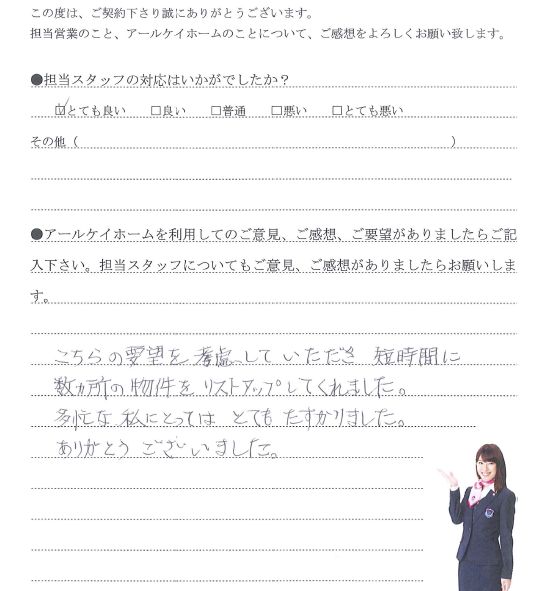 この度は、ご契約下さり誠にありがとうございます。
担当営業のこと、アールケイホームのことについて、ご感想をよろしくお願い致します。
●担当スタッフの対応はいかがでしたか？
☑とても良い　□良い　□普通　□悪い　□とても悪い
その他（　　　　　　　　　　　　　　　　　　　　　　　　　）
●アールケイホームを利用してのご意見、ご感想、ご要望がありましたらご記
入下さい。担当スタッフについてもご意見、ご感想がありましたらお願いしま
す。
こちらの要望を考慮していただき 短時間に
数カ所の物件をリストアップしてくれました。
多忙な私にとっては とてもたすかりました。
ありがとうございました。